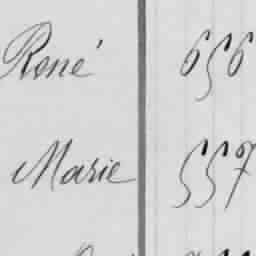 René 656
Marie 557